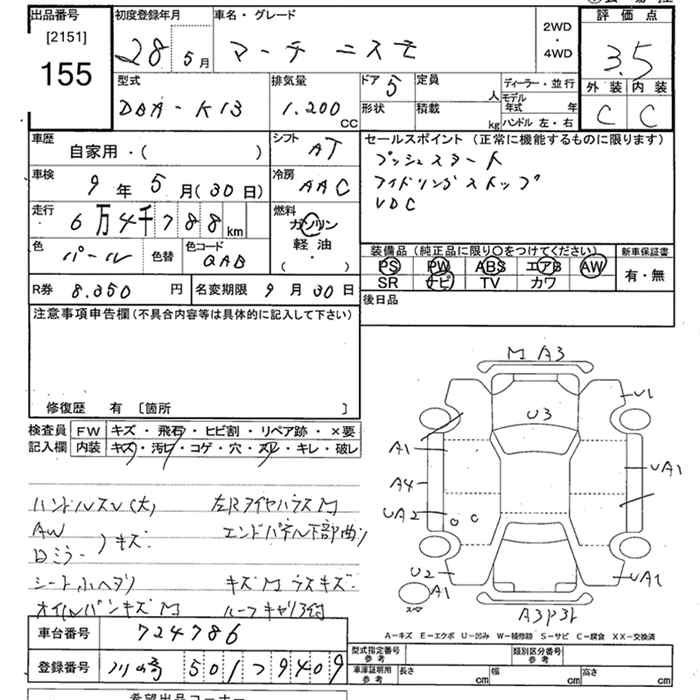 出品番号
[2151]
155
初度登録年月
28 5月
車名・グレード
マーチ ニスモ
2WD
・
4WD
評価点
3.5
外装 内装
C C
型式
DBA-K13
排気量
1.200 CC
ドア 5
定員 人
形状
積載 kg
ディーラー・並行
モデル年式 年
ハンドル 左・右
車歴
自家用・( )
シフト
AT
セールスポイント (正常に機能するものに限ります)
プッシュスタート
アイドリングストップ
VDC
車検
9年5月(30日)
冷房
AAC
走行
6万4千788km
燃料
ガソリン
軽油
( ・ )
色
パール
色替
色コード
QAB
装備品 (純正品に限り〇をつけてください)
PS PW ABS エアB AW
SR ナビ TV カワ
新車保証書
有・無
R券 8.350円
名変期限 9月30日
後日品
注意事項申告欄(不具合内容等は具体的に記入して下さい)
修復歴 有 〔箇所 〕
検査員記入欄
FW キズ・飛石・ヒビ割・リペア跡・×要
内装 キズ・汚レ・コゲ・穴・スレ・キレ・破レ
ハンドルスレ(大)
AW
ロミラー
キズ
シート
オイルパンキズM
左Rタイヤハウス M
エンドパネル下部曲り
キズM ラスキズ
ルーフキャリア付
M A3
U1
U3
A1
A4
UA2
UA1
U2
A1
スペ
UA1
A3P3
A-キズ E-エクボ U-凹み W-補修跡 S-サビ C-腐食 XX-交換済
車台番号 724786
登録番号 川崎 501 9409
型式指定番号
参考
類別区分番号
参考
車庫証明用
参考
長さ cm
幅 cm
高さ cm
希望出品コーナー